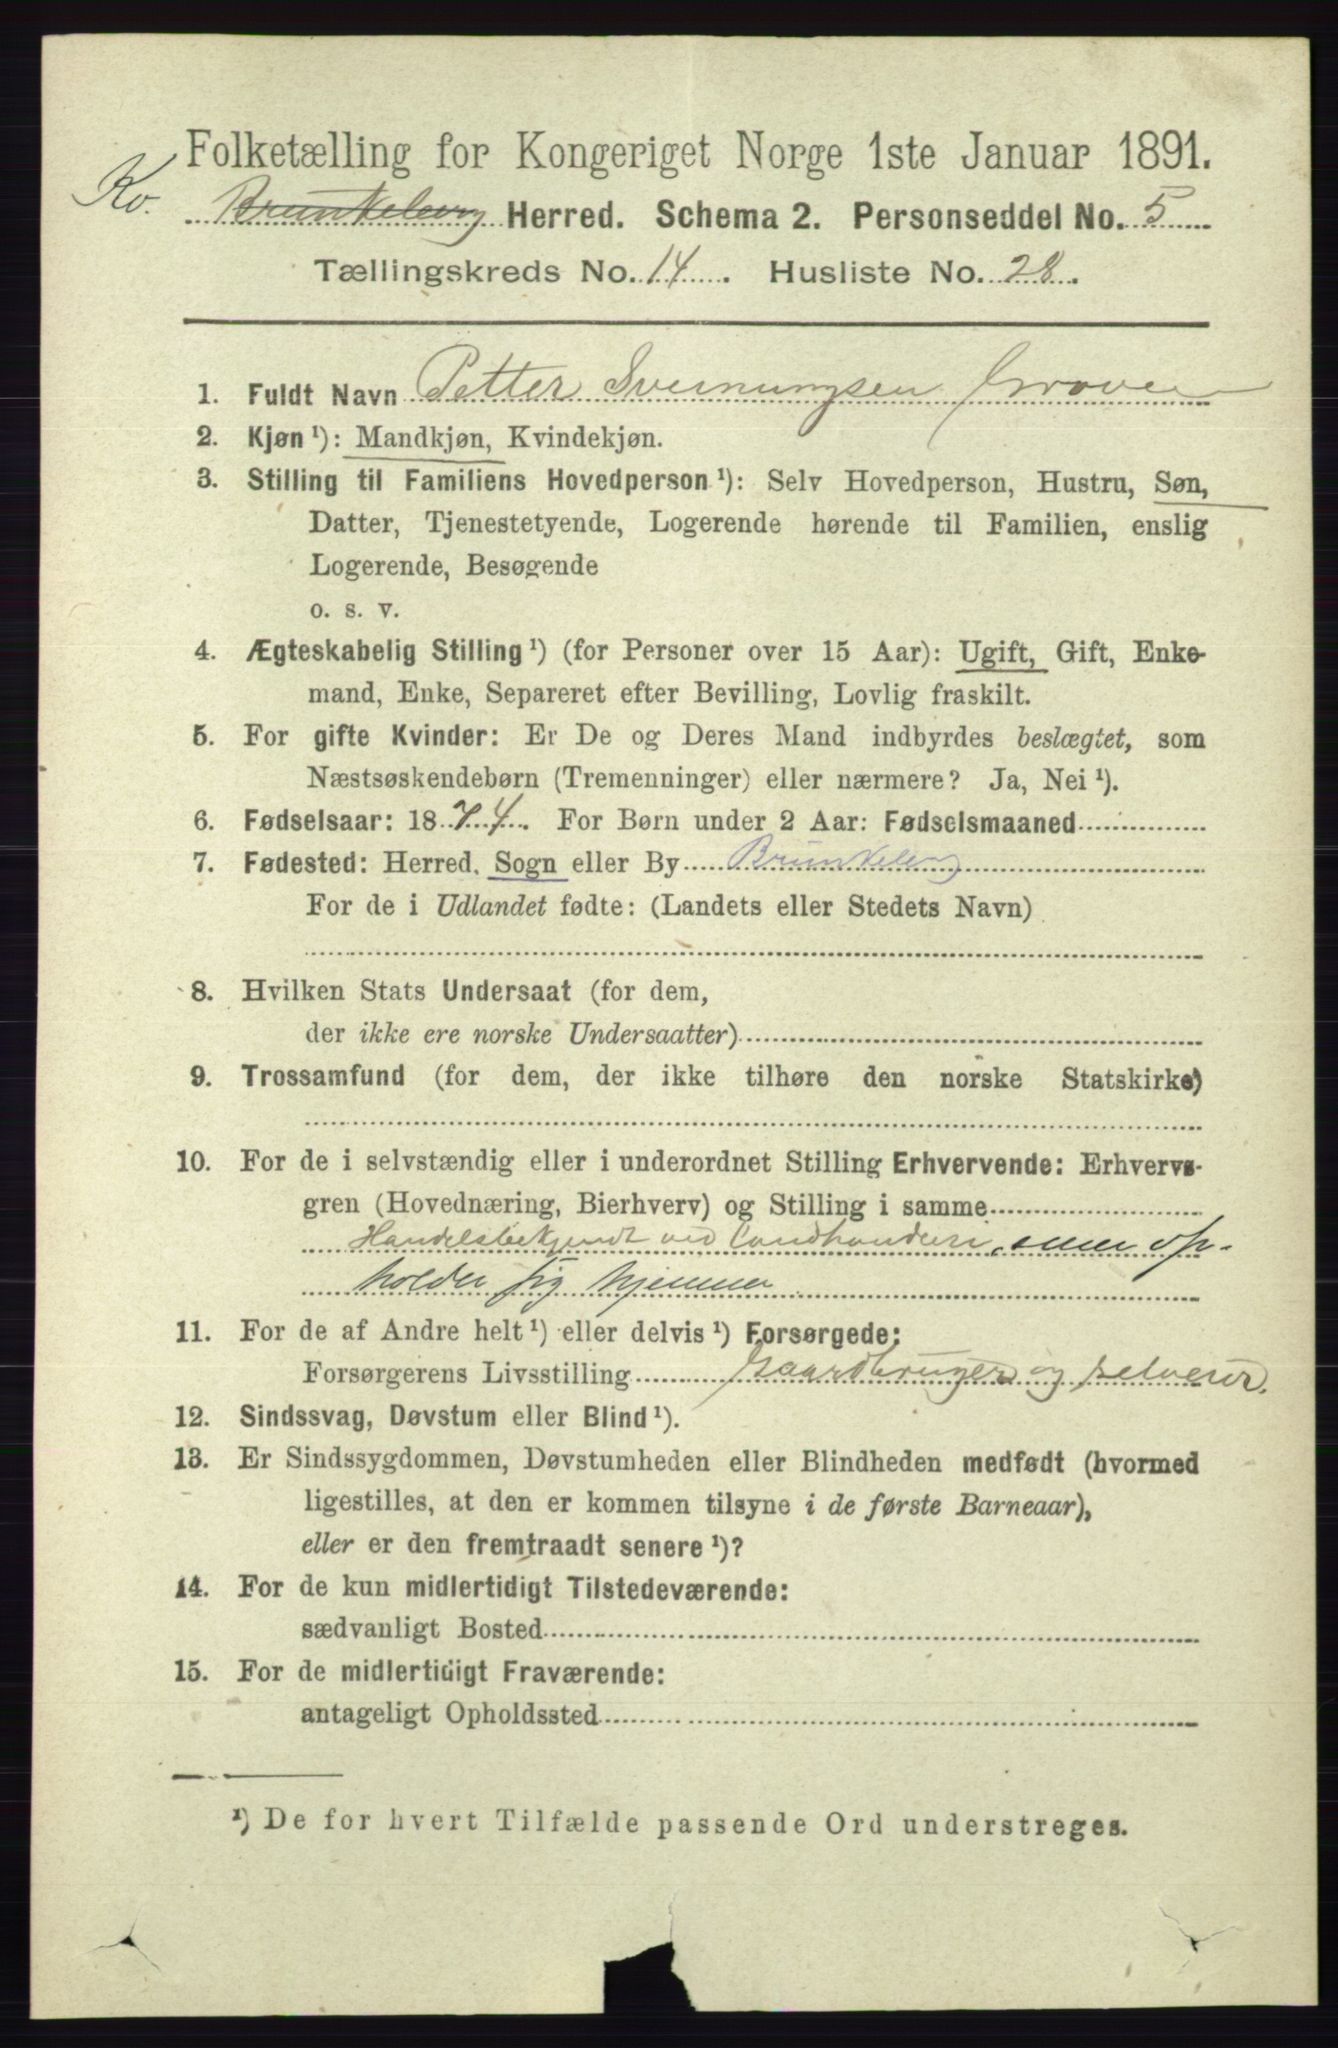 Folketælling for Kongeriget Norge 1ste Januar 1891.
Kv. Brunkeberg Herred. Schema 2. Personseddel No. 5
Tællingskreds No. 14. Husliste No. 28.
1. Fuldt Navn Petter Sveinungsen Groven
2. Kjøn ¹): Mandkjøn, Kvindekjøn.
3. Stilling til Familiens Hovedperson ¹): Selv Hovedperson, Hustru, Søn,
Datter, Tjenestetyende, Logerende hørende til Familien, enslig
Logerende, Besøgende
o. s. v.
4. Ægteskabelig Stilling ¹) (for Personer over 15 Aar): Ugift, Gift, Enke-
mand, Enke, Separeret efter Bevilling, Lovlig fraskilt.
5. For gifte Kvinder: Er De og Deres Mand indbyrdes beslægtet, som
Næstsøskendebørn (Tremenninger) eller nærmere? Ja, Nei ¹).
6. Fødselsaar: 1874. For Børn under 2 Aar: Fødselsmaaned
7. Fødested: Herred, Sogn eller By Brunkeberg
For de i Udlandet fødte: (Landets eller Stedets Navn)
8. Hvilken Stats Undersaat (for dem,
der ikke ere norske Undersaatter)
9. Trossamfund (for dem, der ikke tilhøre den norske Statskirke)
10. For de i selvstændig eller i underordnet Stilling Erhvervende: Erhvervs-
gren (Hovednæring, Bierhverv) og Stilling i samme
Handelsbetjendt ved Landhandleri, men op-
holder sig hjemme
11. For de af Andre helt ¹) eller delvis ¹) Forsørgede:
Forsørgerens Livsstilling Gaardbruger og selveier.
12. Sindssvag, Døvstum eller Blind ¹).
13. Er Sindssygdommen, Døvstumheden eller Blindheden medfødt (hvormed
ligestilles, at den er kommen tilsyne i de første Barneaar),
eller er den fremtraadt senere ¹)?
14. For de kun midlertidigt Tilstedeværende:
sædvanligt Bosted
15. For de midlertidigt Fraværende:
antageligt Opholdssted
¹) De for hvert Tilfælde passende Ord understreges.